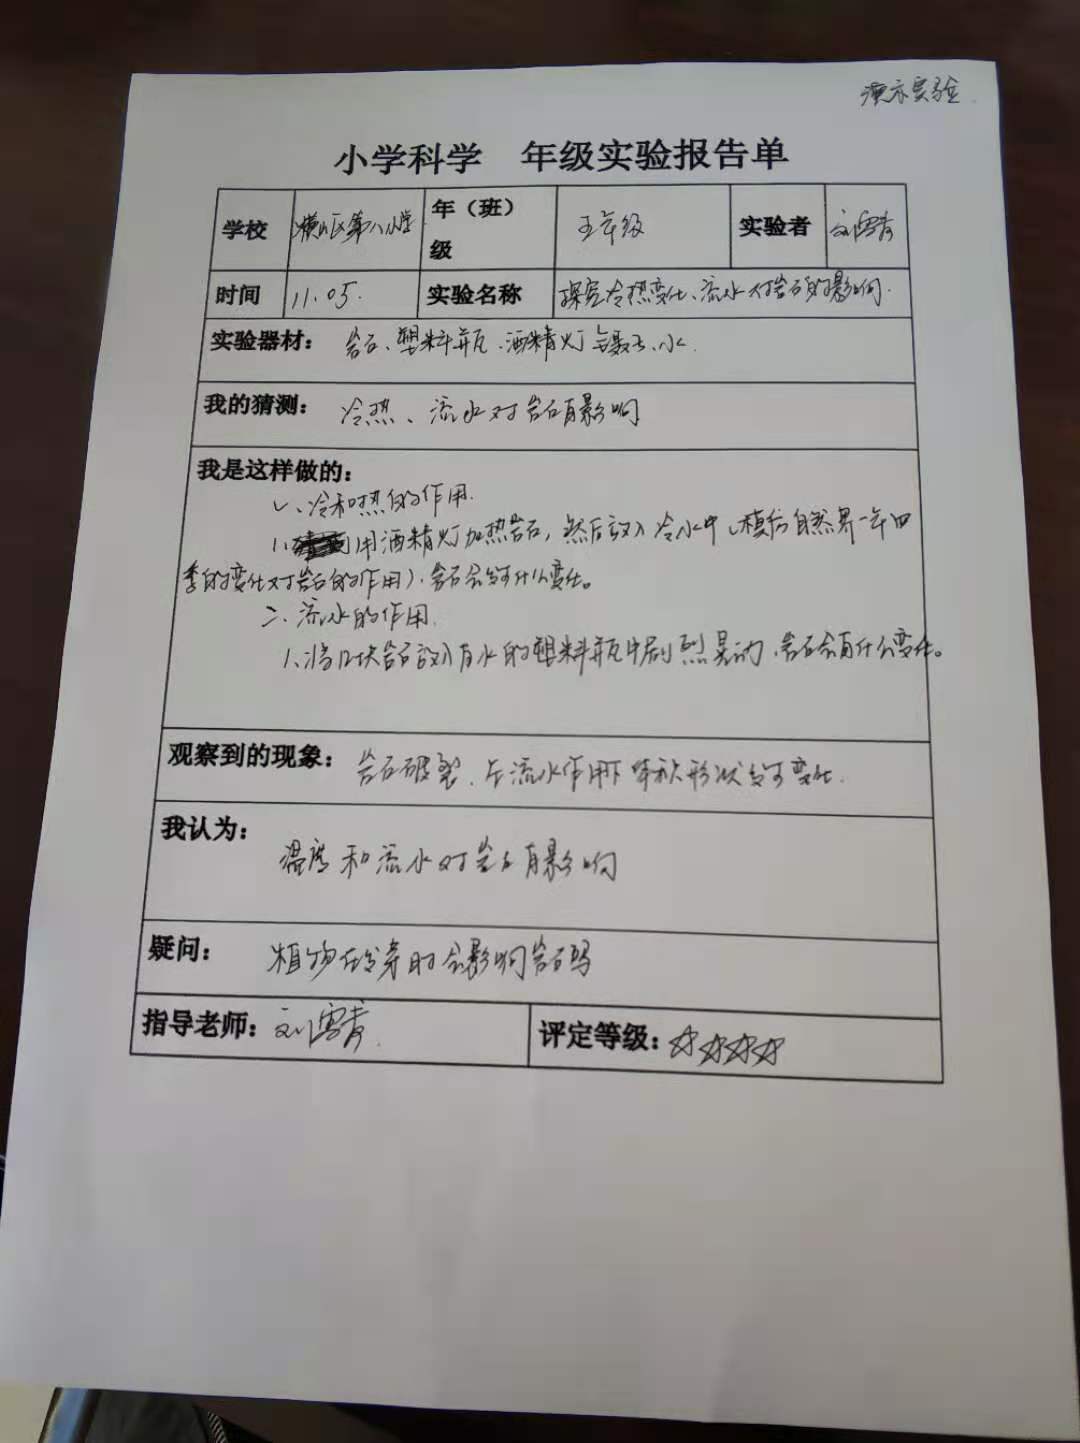 演示实验
小学科学 年级实验报告单
学校 横山区第八小学 年(班)级 五年级 实验者 刘雪青
时间 11.05. 实验名称 探究冷热变化、流水对岩石的影响.
实验器材: 岩石、塑料瓶、酒精灯、镊子、水.
我的猜测: 冷热、流水对岩石有影响
我是这样做的:
一、冷和热的作用.
1、用酒精灯加热岩石,然后放入冷水中(模仿自然界一年四
季的变化对岩石的作用).岩石会有什么变化。
二、流水的作用.
1、将几块岩石放入有水的塑料瓶中剧烈晃动,岩石会有什么变化。
观察到的现象: 岩石破裂、在流水作用下体积形状会有变化.
我认为:
温度和流水对岩石有影响
疑问: 植物在生长时会影响岩石吗
指导老师: 刘雪青. 评定等级: ☆☆☆☆